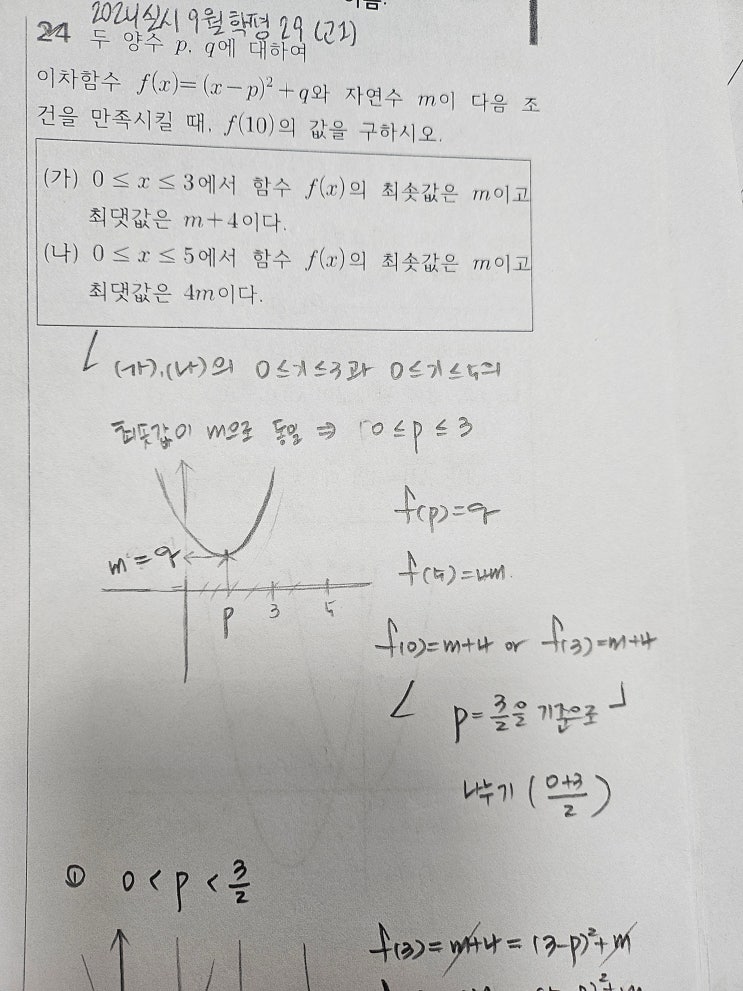 24 2024실시 9월 학평 29 (고1)
두 양수 p, q에 대하여
이차함수 f(x)=(x-p)²+q와 자연수 m이 다음 조
건을 만족시킬 때, f(10)의 값을 구하시오.
(가) 0≤x≤3에서 함수 f(x)의 최솟값은 m이고
최댓값은 m+4이다.
(나) 0≤x≤5에서 함수 f(x)의 최솟값은 m이고
최댓값은 4m이다.
(가),(나)의 0≤x≤3과 0≤x≤5의
최솟값이 m으로 동일 ⇒ 0≤p≤3
f(p)=q
m=q
f(5)=4m.
p 3 5
f(0)=m+4 or f(3)=m+4
p=3/2을 기준으로
나누기 (0+3/2)
① 0<p<3/2
f(3)=m+4=(3-p)²+m